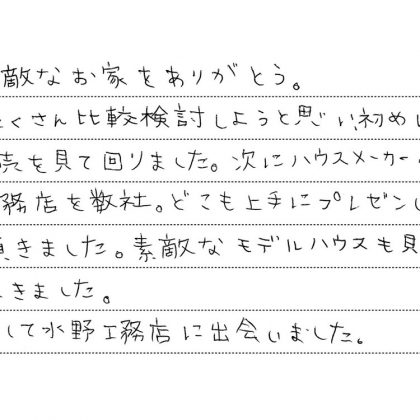 敵なお家をありがとう。
くさん比較検討しようと思い初め
売を見て回りました。次にハウスメーカー
務店を数社。どこも上手にプレゼン
頂きました。素敵なモデルハウスも見
きました。
して水野工務店に出会いました。